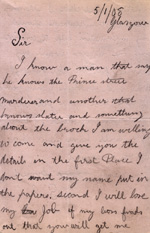 5/1/09
Glasgow
Sir
I know a man that says
he knows the Prince street
murderer and another that
knows Slater and something
about the broch I am willing
to come and give you the
details in the first Place I
don't want my name put in
the papers, second I will lose
my Job if my own finds
out that you will get me